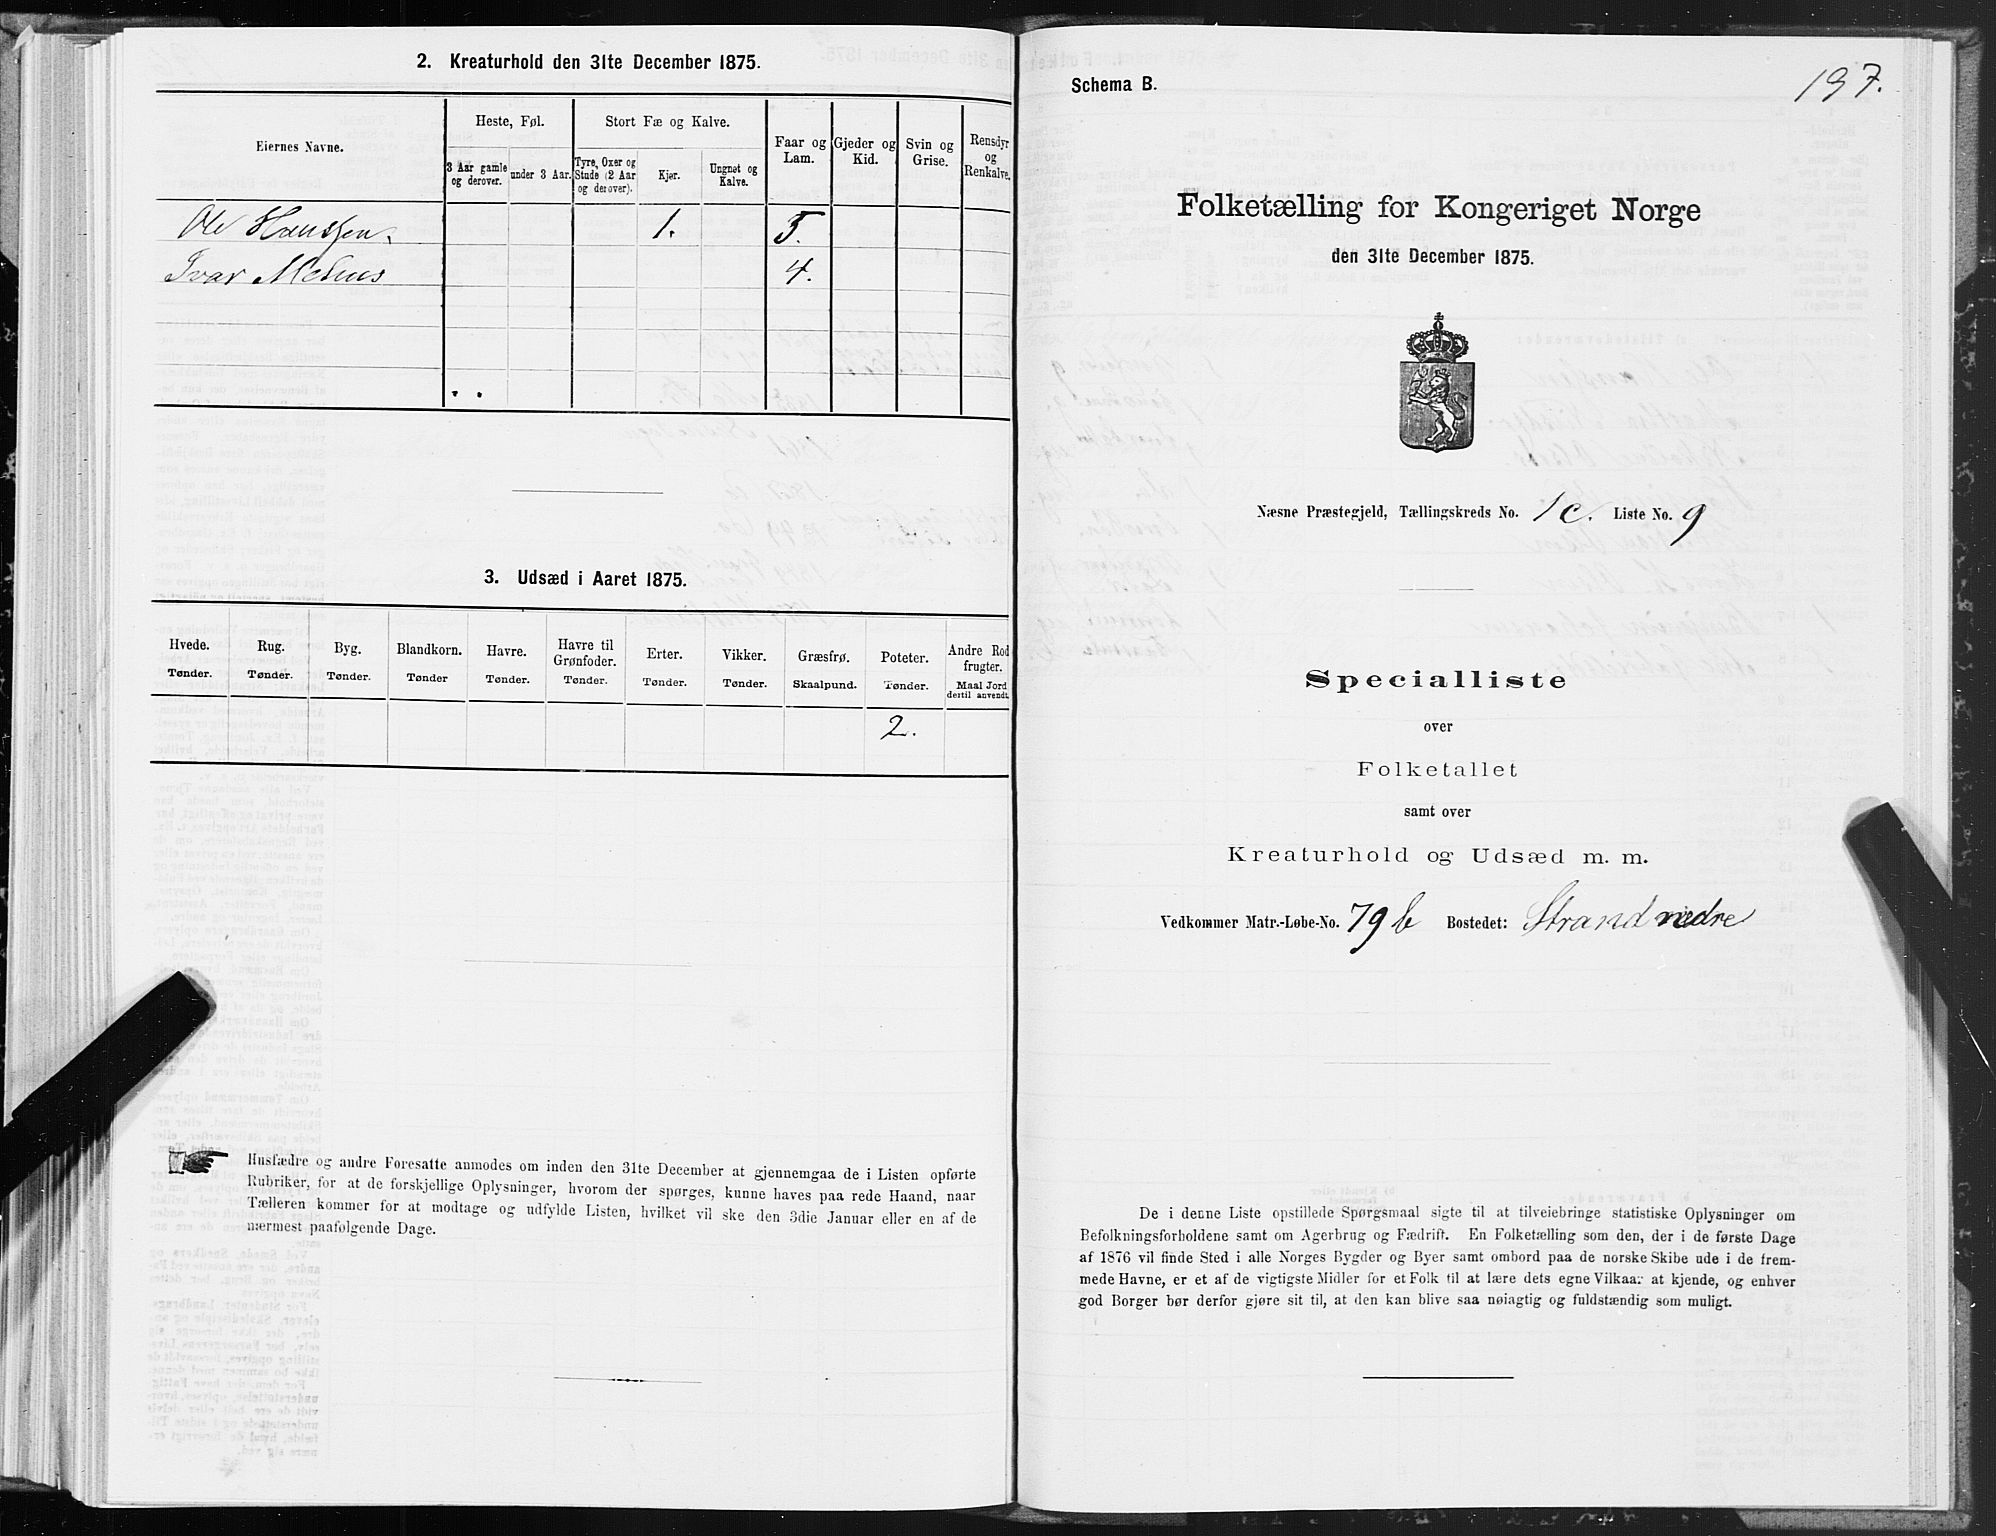 2. Kreaturhold den 31te December 1875.
Eiernes Navne.
Heste, Føl.
Stort Fæ og Kalve.
Faar og Lam.
Gjeder og Kid.
Svin og Grise.
Rensdyr og Renkalve.
3 Aar gamle og derover.
under 3 Aar.
Tyre, Oxer og Stude (2 Aar og derover).
Kjør.
Ungnøt og Kalve.
Ole Hanssen. 1. 5.
Ivar 4.
3. Udsæd i Aaret 1875.
Hvede. Rug. Byg. Blandkorn. Havre. Havre til Grønfoder. Erter. Vikker. Græsfrø. Poteter. Andre Rodfrugter.
Tønder. Tønder. Tønder. Tønder Tønder. Tønder. Tønder. Tønder. Skaalpund. Tønder. Maal Jord dertil anvendt.
2.
Husfædre og andre Foresatte anmodes om inden den 31te December at gjennemgaa de i Listen opførte
Rubriker, for at de forskjellige Oplysninger, hvorom der spørges, kunne haves paa rede Haand, naar
Tælleren kommer for at modtage og udfylde Listen, hvilket vil ske den 3die Januar eller en af de
nærmest paafølgende Dage.
197.
Schema B.
Folketælling for Kongeriget Norge
den 31te December 1875.
Næsne Præstegjeld, Tællingskreds No. 1c. Liste No. 9
Specialliste
over
Folketallet
samt over
Kreaturhold og Udsæd m. m.
Vedkommer Matr.-Løbe-No. 79b Bostedet: Strand nedre
De i denne Liste opstillede Spørgsmaal sigte til at tilveiebringe statistiske Oplysninger om
Befolkningsforholdene samt om Agerbrug og Fædrift. En Folketælling som den, der i de første Dage
af 1876 vil finde Sted i alle Norges Bygder og Byer samt ombord paa de norske Skibe ude i de frem-
mede Havne, er et af de vigtigste Midler for et Folk til at lære dets egne Vilkaar at kjende, og enhver
god Borger bør derfor gjøre sit til, at den kan blive saa nøiagtig og fuldstændig som muligt.